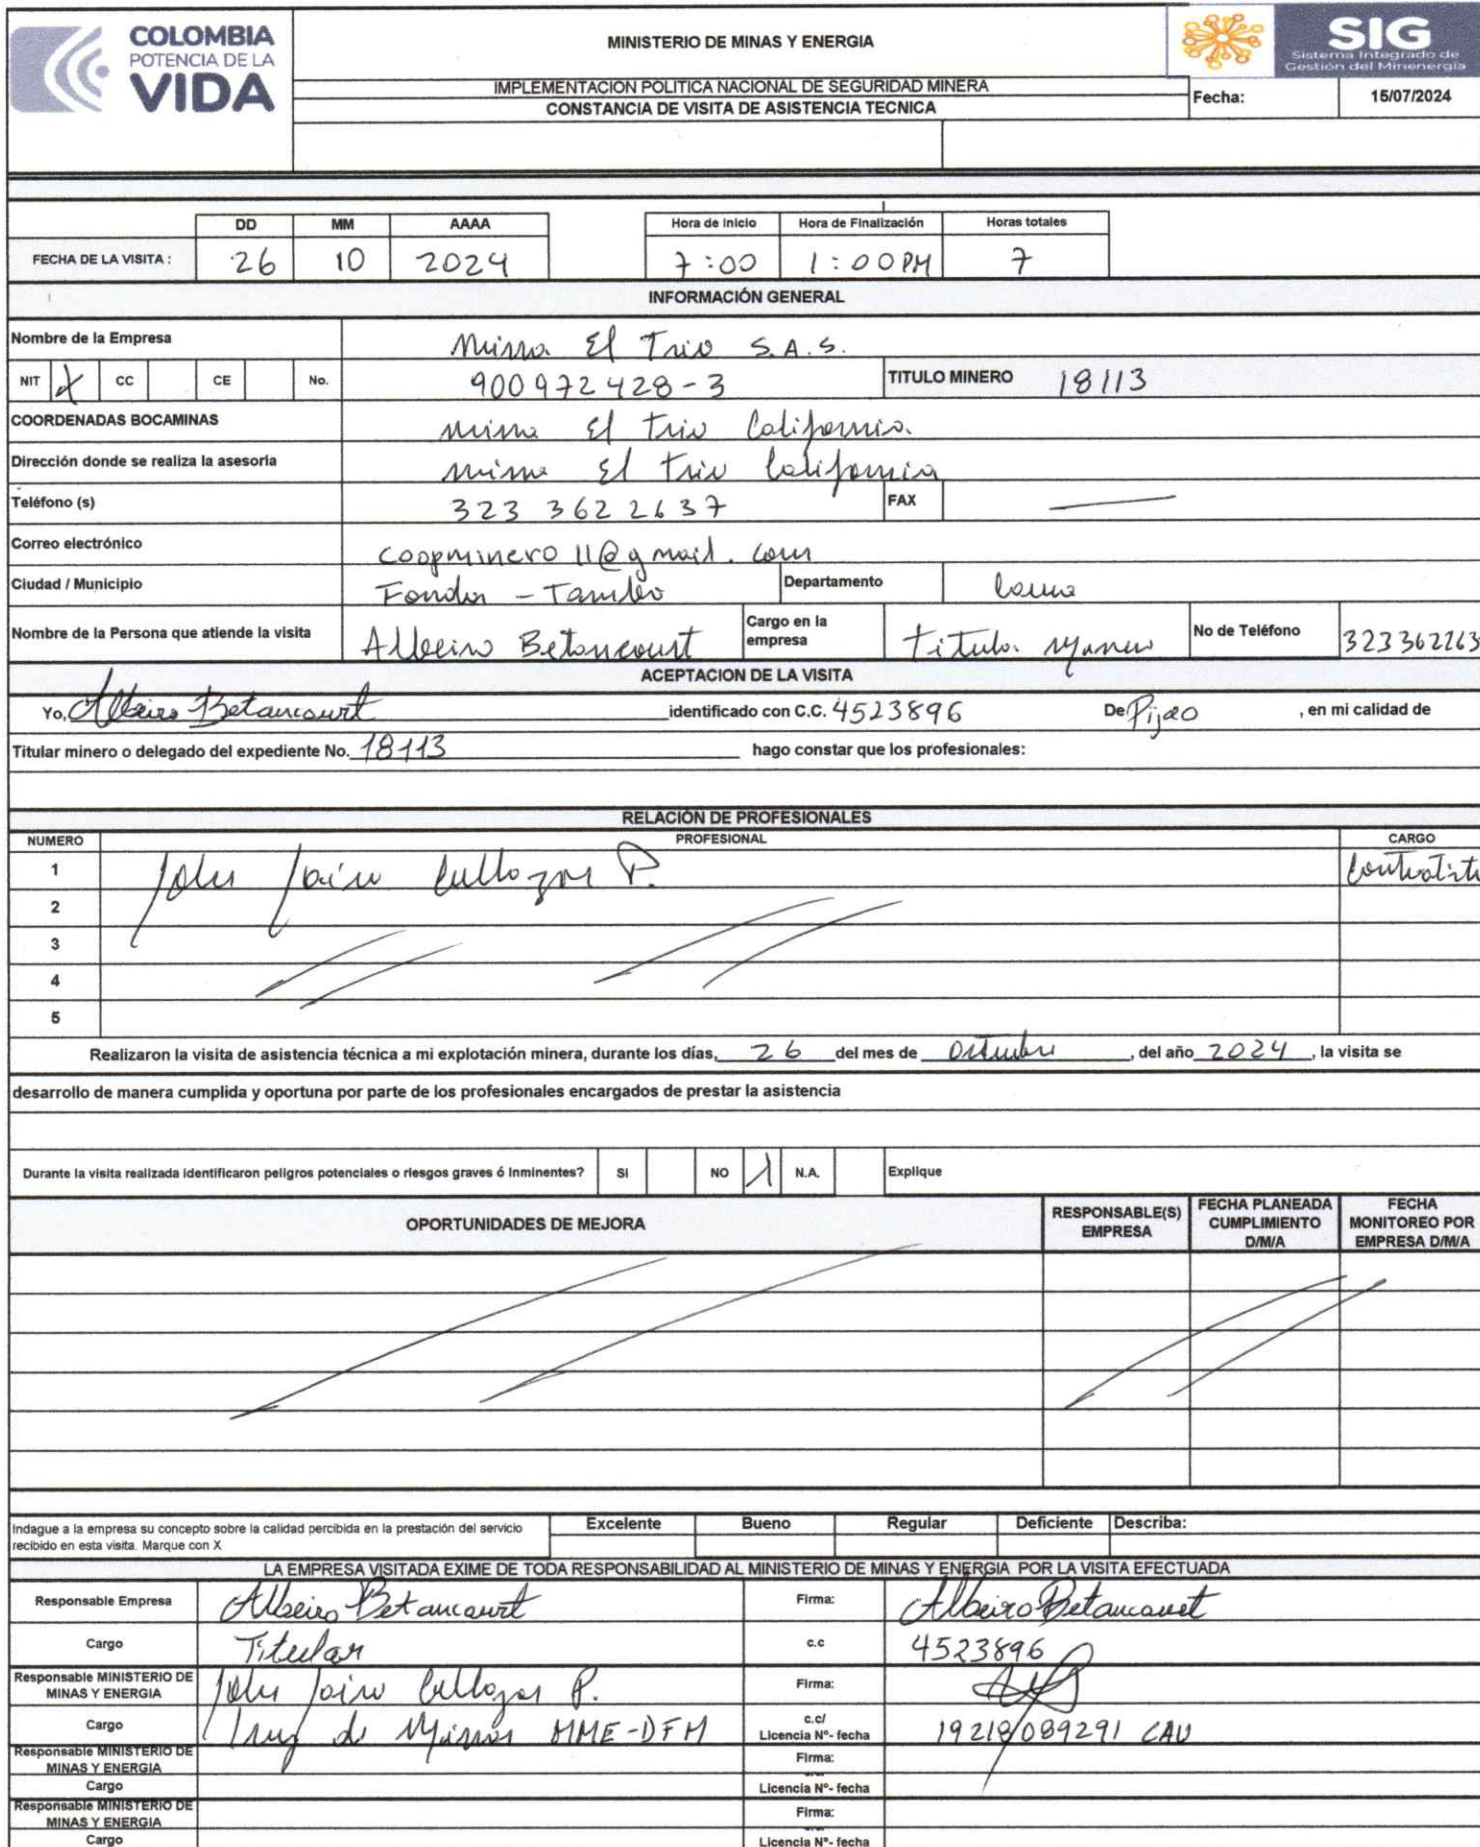 COLOMBIA
POTENCIA DE LA
VIDA
MINISTERIO DE MINAS Y ENERGIA
SIG
Sistema Integrado de
Gestión del Minenergía
IMPLEMENTACION POLITICA NACIONAL DE SEGURIDAD MINERA
CONSTANCIA DE VISITA DE ASISTENCIA TECNICA
Fecha: 15/07/2024
DD MM AAAA Hora de Inicio Hora de Finalización Horas totales
FECHA DE LA VISITA : 26 10 2024 7:00 1:00PM 7
INFORMACIÓN GENERAL
Nombre de la Empresa Mina El Trio S.A.S.
NIT X CC CE No. 900972428-3 TITULO MINERO 18113
COORDENADAS BOCAMINAS mina El Trio California.
Dirección donde se realiza la asesoria mina El Trio California
Teléfono (s) 323 362 2637 FAX
Correo electrónico coopminero11@gmail.com
Ciudad / Municipio Fondas - Tambo Departamento Cauca
Nombre de la Persona que atiende la visita Albeiro Betancourt Cargo en la empresa Titular Minero No de Teléfono 323362263
ACEPTACION DE LA VISITA
Yo, Albeiro Betancourt identificado con C.C. 4523896 De Pijao , en mi calidad de
Titular minero o delegado del expediente No. 18113 hago constar que los profesionales:
RELACIÓN DE PROFESIONALES
NUMERO PROFESIONAL CARGO
1 John Jairo Collazos P. Contratista
2
3
4
5
Realizaron la visita de asistencia técnica a mi explotación minera, durante los días, 26 del mes de Octubre , del año 2024 , la visita se
desarrollo de manera cumplida y oportuna por parte de los profesionales encargados de prestar la asistencia
Durante la visita realizada identificaron peligros potenciales o riesgos graves ó Inminentes? SI NO N.A. Explique
OPORTUNIDADES DE MEJORA RESPONSABLE(S) EMPRESA FECHA PLANEADA CUMPLIMIENTO D/M/A FECHA MONITOREO POR EMPRESA D/M/A
Indague a la empresa su concepto sobre la calidad percibida en la prestación del servicio
recibido en esta visita. Marque con X
Excelente Bueno Regular Deficiente Describa:
LA EMPRESA VISITADA EXIME DE TODA RESPONSABILIDAD AL MINISTERIO DE MINAS Y ENERGIA POR LA VISITA EFECTUADA
Responsable Empresa Albeiro Betancourt Firma: Albeiro Betancourt
Cargo Titular c.c 4523896
Responsable MINISTERIO DE MINAS Y ENERGIA John Jairo Collazos P. Firma:
Cargo Ing de Minas MME-DFM c.c/ Licencia Nº- fecha 19218089291 CAU
Responsable MINISTERIO DE MINAS Y ENERGIA Firma:
Cargo Licencia Nº- fecha
Responsable MINISTERIO DE MINAS Y ENERGIA Firma:
Cargo Licencia Nº- fecha